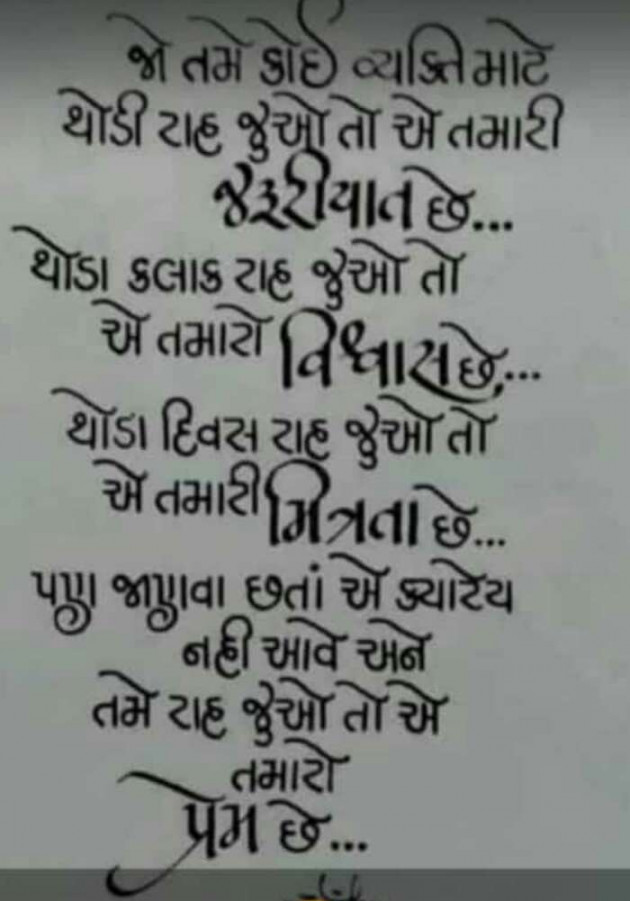 જો તમે કોઈ વ્યક્તિ માટે
થોડી રાહ જુઓ તો એ તમારી
જરૂરીયાત છે...
થોડા કલાક રાહ જુઓ તો
એ તમારો વિશ્વાસ છે,...
થોડા દિવસ રાહ જુઓ તો
એ તમારી મિત્રતા છે...
પણ જાણવા છતાં એ ક્યારેય
નહી આવે અને
તમે રાહ જુઓ તો એ
તમારો
પ્રેમ છે...